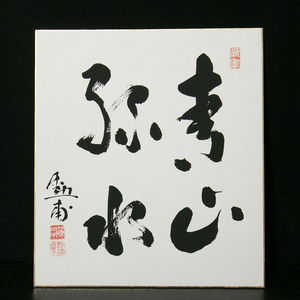 青山
緑水